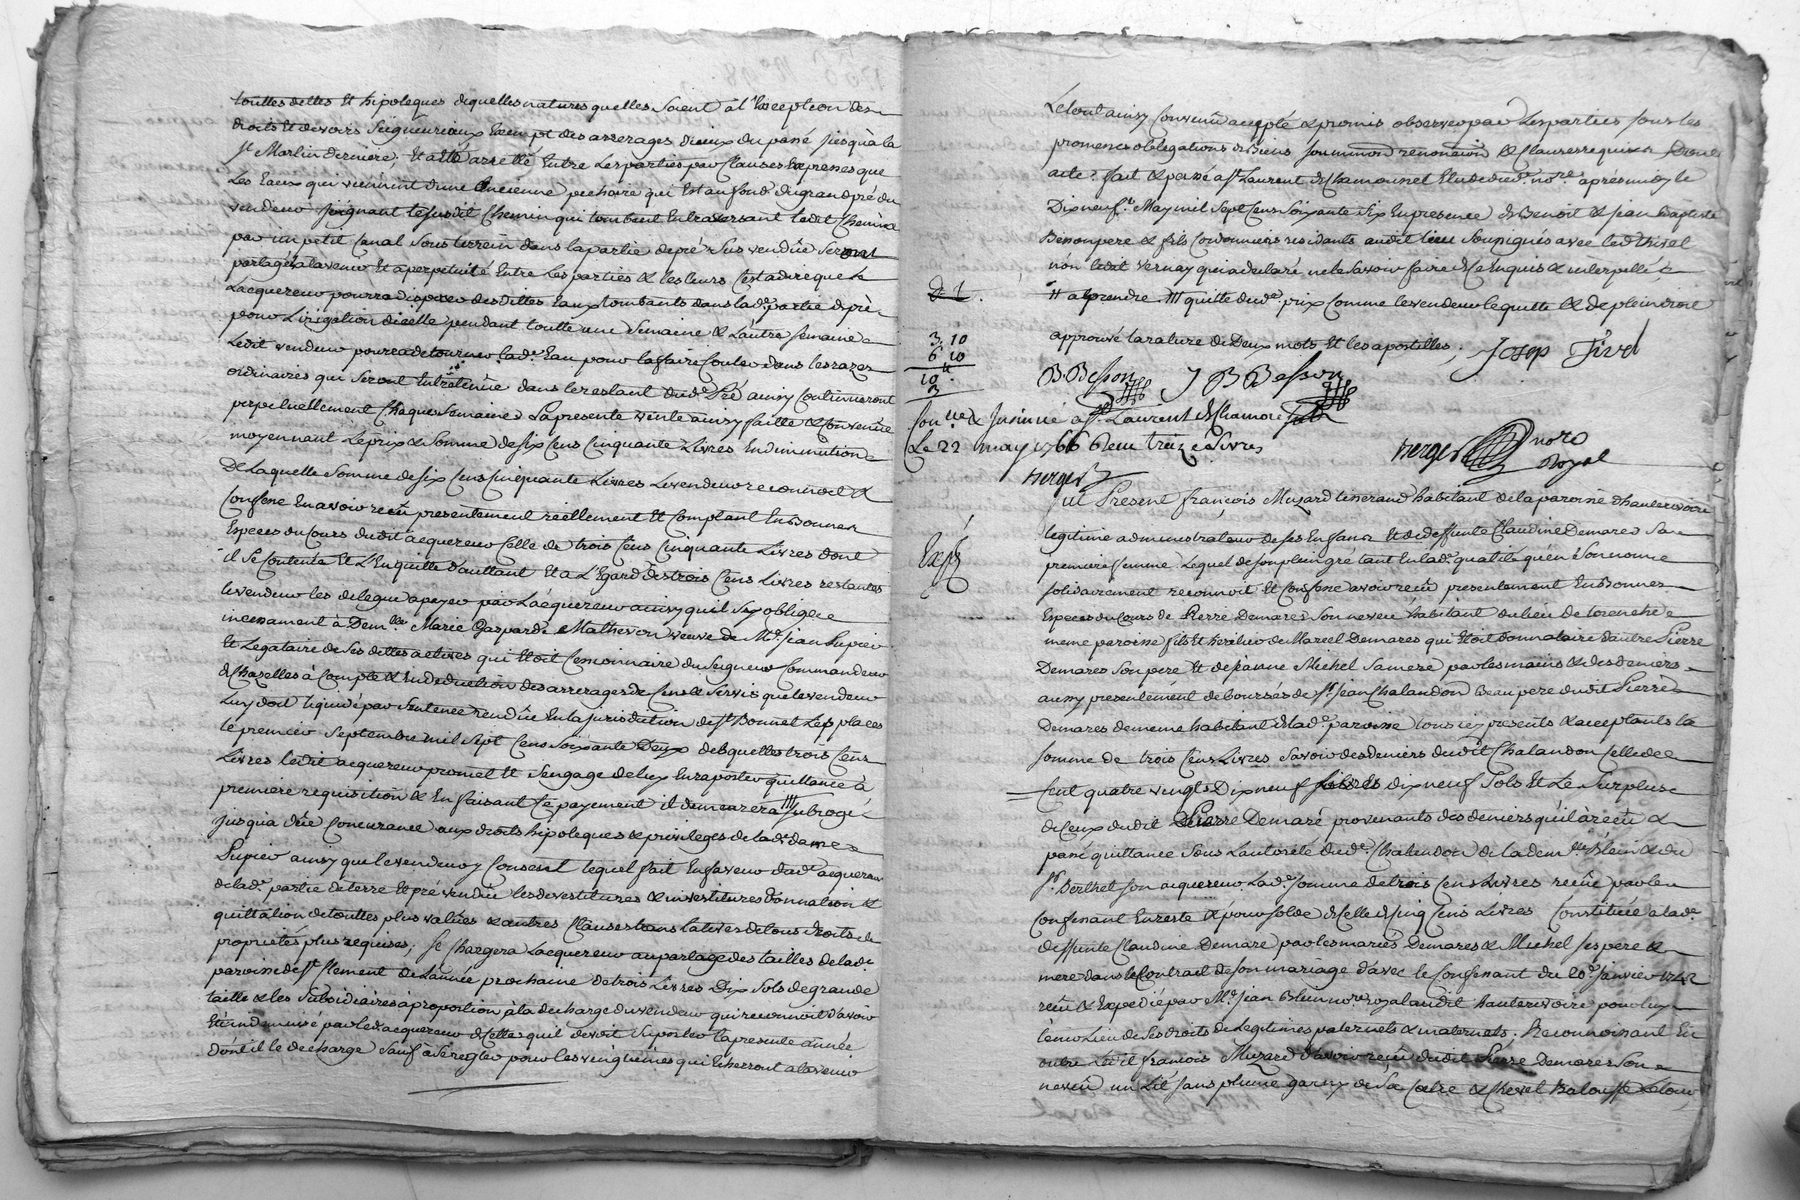 touttes dettes Et hipoteques de quelles natures quelles soient a l'Exception des
droits Et devoirs Seigneuriaux Exempt des arrerages d'iceux du passé jusqu'à la
St Martin derniere. Et a Eté arretté Entre les parties par Clauses Expresses que
Les Eaux qui viennent d'une Ancienne pechoire qui Est au fond du grand pré du
vendeur joignant le susdit Chemin qui tombent En traversant ledit Chemin
par un petit Canal Sous terrein dans la partie de pré Sus vendüe Seront
partagés a l'avenir Et a perpetuité Entre Les parties & les leurs C'est a dire que
Lacquereur pourra disposer desdittes Eaux tombants dans lad.e partie de pré
pour L'irrigation d'icelle pendant toutte une Semaine & l'autre Semaine
Ledit vendeur pourra detourner lad.e Eau pour la faire Couler dans les razes
ordinaires qui Seront Entretenüe dans le restant dud.t Pré ainsy Continueront
perpetuellement Chaque Semaine. La presente vente ainsy faitte & Convenüe
moyennant Le prix & Somme de Six Cens Cinquante Livres En diminution
De Laquelle Somme de Six Cens Cinquante Livres Le vendeur reconnoit &
Confesse En avoir reçu presentement réellement Et Comptant En Bonnes
Especes du Cours dudit acquereur Celle de trois Cens Cinquante Livres dont
il Se Contente Et L'En quitte d'auttant Et a L'Egard des trois Cens Livres restantes
le vendeur les delegue a payer par Lacquereur ainsy qu'il s'y oblige
incessament à Dem.lle Marie Gasparde Mathevon veuve de M.e Jean Pupier
Et Legataire de Ses dettes actives qui Etoit Cessionnaire du Seigneur Commandeur
de Chazelles à Compte & En deduction des arrerages de Cens & Servis que le vendeur
Luy doit liquidé par Sentence rendüe En la jurisdiction de St Bonnet Les places
le premier Septembre mil Sept Cens Soixante Deux desquelles trois Cens
Livres ledit acquereur promet Et S'engage de luy En raporter quittance à
premiere requisition & En faisant Le payement il demeurera /// Subrogé
jusqu'a düe Concurance aux droits hipoteques & privileges de lad.e dame
Pupier ainsy que le vendeur y Consent lequel fait En faveur dud. acquereur
de lad.e partie de terre Et pré vendüe les devestitures & investitures donnation &
quittation de touttes plus values & autres Clauses translatives de tous droits de
propriétés plus requises; Se Chargera Lacquereur au partage des tailles de lad.e
paroisse de St Clement de L'année prochaine de trois Livres Dix Sols de grande
taille & les Subsidiaires à proportion à la decharge du vendeur qui reconnoit d'avoir
Eté indemnisé par led acquereur de Celles qu'il devoit Suporter la presente année
dont il le decharge Sauf à Se regler pour les vingtiemes qui Echerront a l'avenir
Le tout ainsy Convenu accepté & promis observer par Les parties Sous les
promesses obligations de Biens Soumission renonciaon & Clauses requises
acte. fait & passé a St Laurent de Chamousset Etude dud.t no.re après midy le
Dix neuf.e May mil Sept Cens Soixante Six En presence de Benoit & jean Baptiste
Besson pere & fils Cordonniers residants audit lieu Soussignés avec led thivel
non ledit vernay qui a declaré ne le Savoir faire de ce Enquis & interpellé
# a prendre /// quitte dud.t prix Comme le vendeur le quitte & de plein droit
approuvé la rature de Deux mots Et les apostilles.
Josep Tivel
3. 10
6 10
10.
3
B. Besson J B Besson
Con.lle & Insinué a St Laurent de Chamousset
Le 22 may 1766 Reçu treize Livres
Berger
Berger nore Royal
Fut Present françois Muzard tisserand habitant de la paroisse d'hauterivoire
legitime administrateur de Ses Enfans Et de deffunte Claudine Demares Sa
premiere femme Lequel de Son plein gré tant En lad.e qualité qu'en Son nom
Solidairement reconnoit Et Confesse avoir reçu presentement En Bonnes
Especes du Cours de Pierre Demares Son neveu habitant du lieu de
meme paroisse fils Et heritier de Marcel Demares qui Etoit donnataire d'autre Pierre
Demares Son pere Et de jeanne Michel Sa mere par les mains & des deniers
aussy presentement deboursés de Sr. jean Chalandon Beau pere dudit Pierre
Demares de meme habitant de lad.e paroisse tous icy presents & acceptants la
Somme de trois Cens Livres Savoir des deniers dudit Chalandon Celle de
Cent quatre vingt Dix neuf livres dix neuf Sols Et Le Surplus
de Ceux dudit Pierre Demaré provenants des deniers qu'il a reçu &
passé quittance Sous L'autorité dud.t Chalandon de la dem.lle Blein & du
Sr. Berthet Son acquereur Lad.e Somme de trois Cens Livres reçüe par le
Confessant En reste & pour Solde de Celle de Cinq Cens Livres Constituée a lad.e
deffunte Claudine Demare par les mariés Demares & Michel Ses pere &
mere dans le Contract de Son mariage d'avec le Confessant du 20.e janvier 1742
reçu & Expedié par M.e jean Blein no.re royal audit hauterivoire pour luy
tenir Lieu de Ses droits de Legitimes paternels & maternels. Reconnoissant En
outre Ledit francois Muzard d'avoir reçu dudit Pierre Demares Son
neveu un Lit Sans plume garny de Sa Coëtre & Chevet Balouffe Le tour